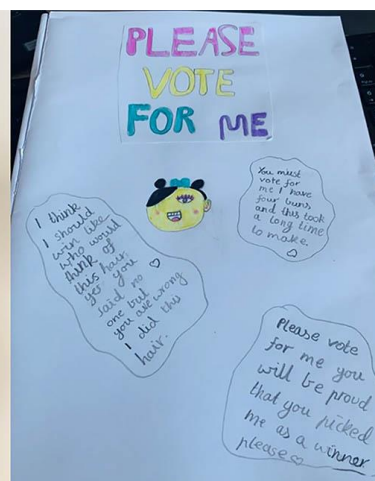 PLEASE
VOTE
FOR ME
You must
vote for
me I have
four buns
and this took
a long time
to make.
I think
I should
win like
who would
think of
this hair
yet you
said no
one but
you are wrong
I did this
hair.
Please vote
for me you
will be proud
that you picked
me as a winner
please